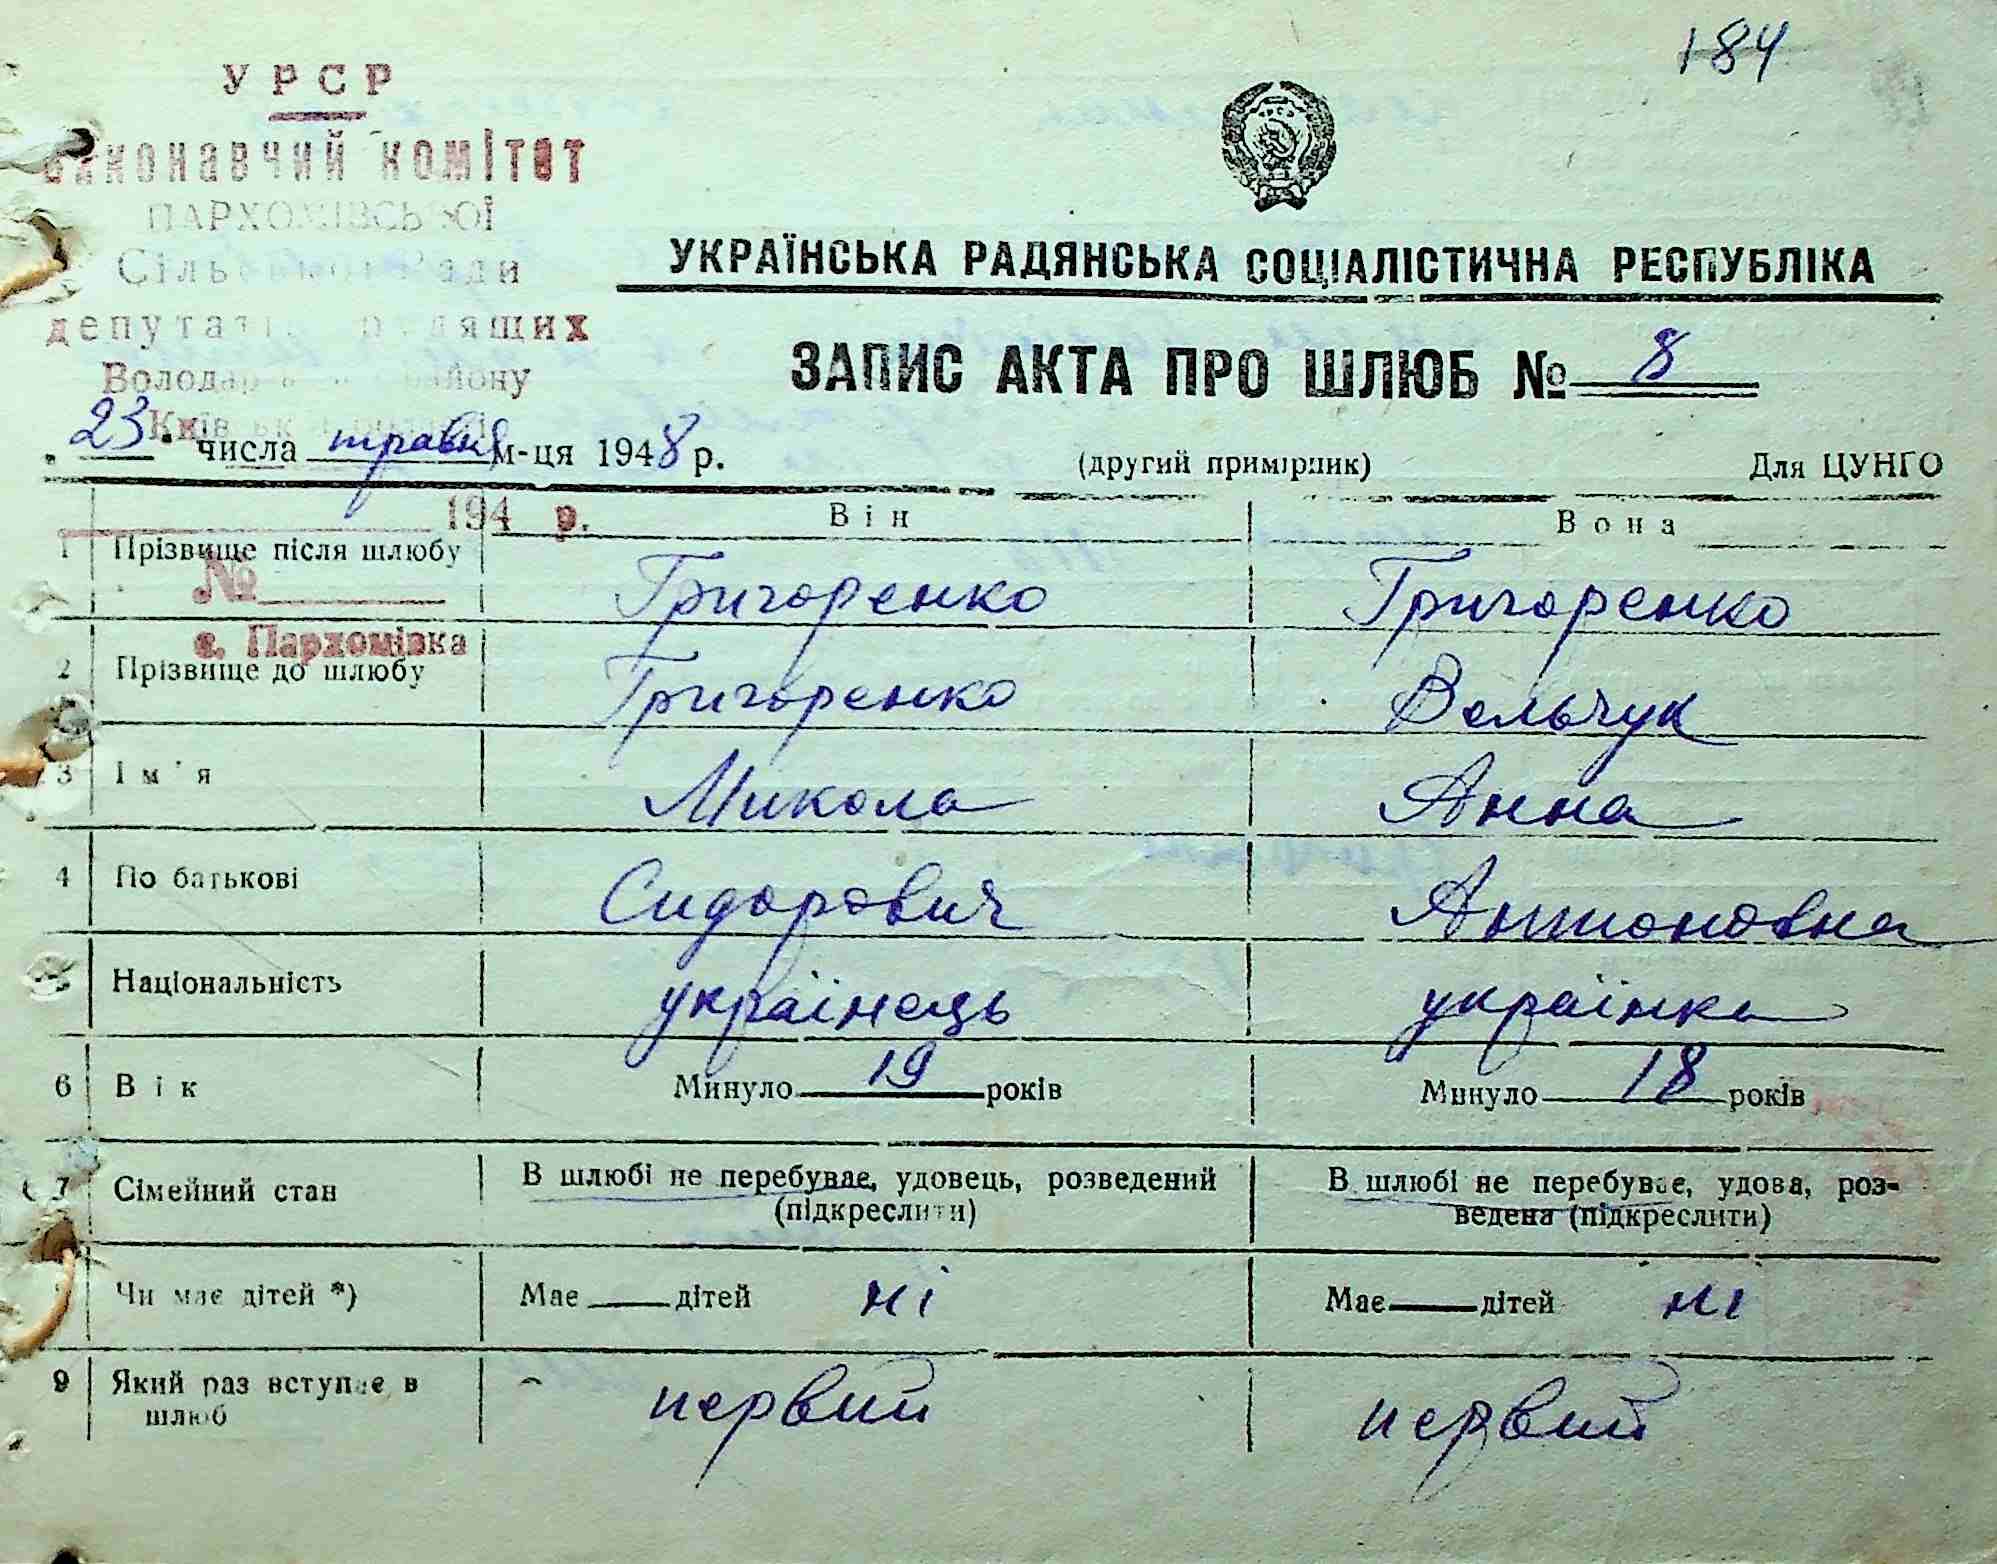 184
УРСР
Виконавчий комітет
ПАРХОМІВСЬКОЇ
Сільської Ради
депутатів трудящих
Володарського району
Київської області
УКРАЇНСЬКА РАДЯНСЬКА СОЦІАЛІСТИЧНА РЕСПУБЛІКА
ЗАПИС АКТА ПРО ШЛЮБ № 8
23 числа травня м-ця 1948 р.
(другий примірник) Для ЦУНГО
194 р.
№
с. Пархомівка
Він Вона
1 Прізвище після шлюбу Григоренко Григоренко
2 Прізвище до шлюбу Григоренко Вельчук
3 Ім'я Микола Анна
4 По батькові Сидорович Антоновна
Національність українець українка
6 Вік Минуло 19 років Минуло 18 років
7 Сімейний стан В шлюбі не перебуває, удовець, розведений (підкреслити) В шлюбі не перебуває, удова, роз-
ведена (підкреслити)
Чи має дітей *) Має — дітей ні Має — дітей ні
9 Який раз вступає в шлюб первий первий